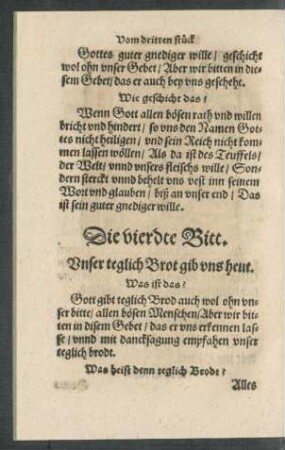 Vom dritten stück
Gottes guter gnediger wille/ geschicht
wol ohn vnser Gebet/ Aber wir bitten in die-
sem Gebet/ das er auch bey vns geschehe.
Wie geschicht das?
Wenn Gott allen bösen rath vnd willen
bricht vnd hindert/ so vns den Namen Got-
tes nicht heiligen/ vnd sein Reich nicht kom-
men lassen wöllen/ Als da ist des Teuffels/
der Welt/ vnnd vnsers fleischs wille/ Son-
dern sterckt vnnd behelt vns vest inn seinem
Wort vnd glauben/ biß an vnser end/ Das
ist sein guter gnediger wille.
Die vierdte Bitt.
Vnser teglich Brot gib vns heut.
Was ist das?
Gott gibt teglich Brod auch wol ohn vn-
ser bitte/ allen bösen Menschen/ Aber wir bit-
ten in disem Gebet/ das er vns erkennen las-
se/ vnnd mit dancksagung empfahen vnser
teglich brodt.
Was heist denn teglich Brodt?
Alles